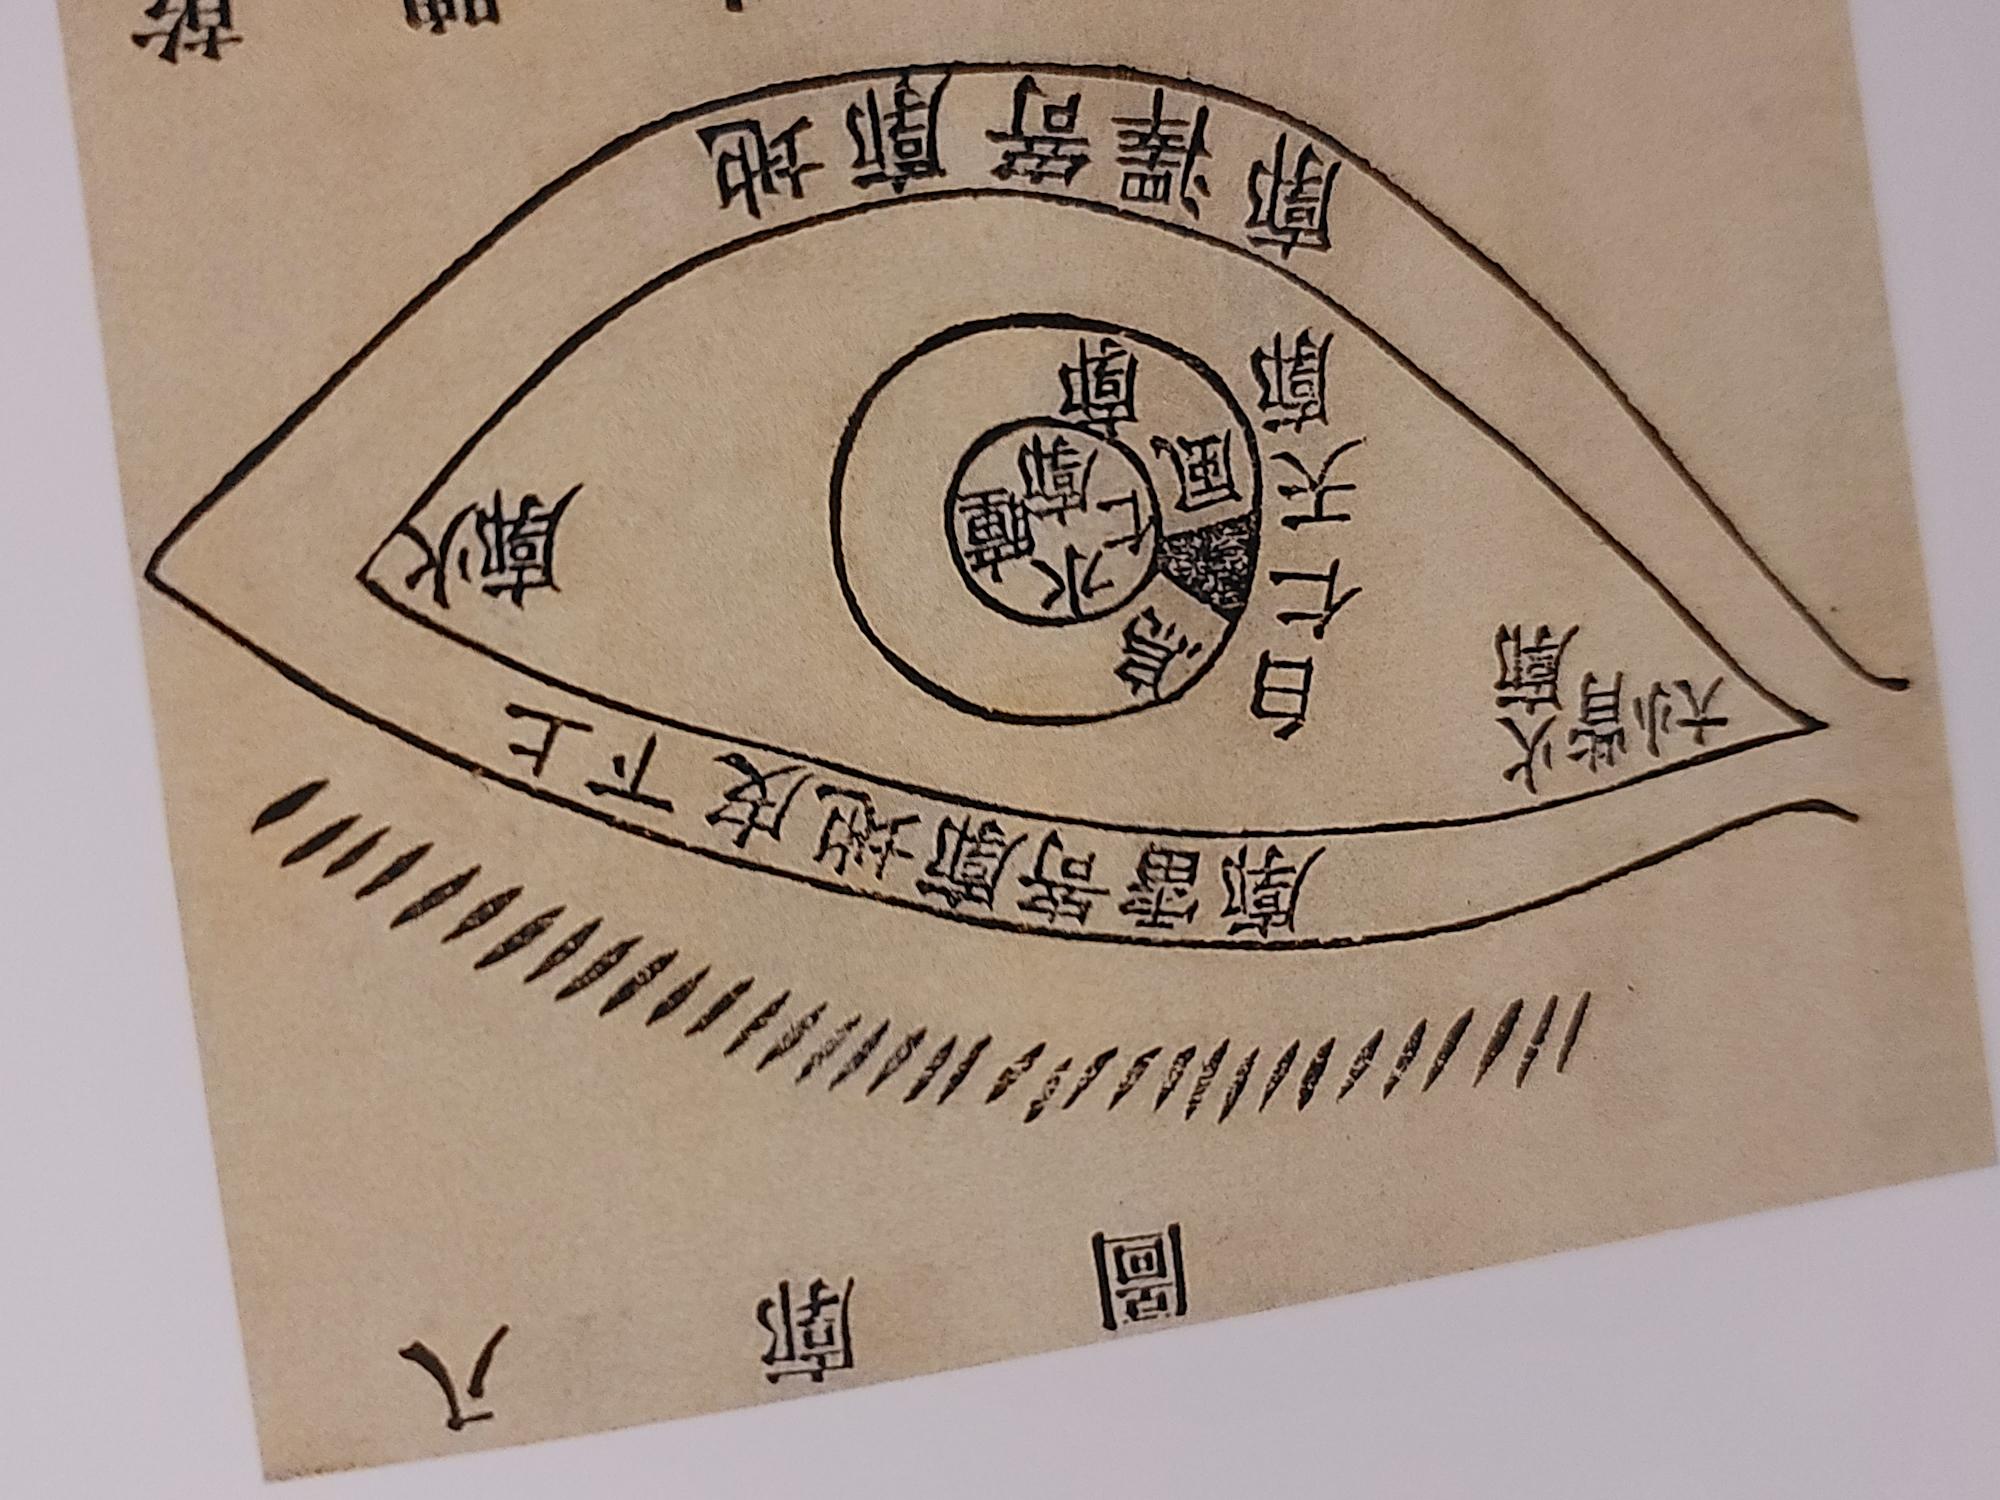 八廓圖
上下皮地廓寄雷廓
火廓
瞳仁水廓
風廓
白仁天廓
大小眥火廓
地廓寄澤廓